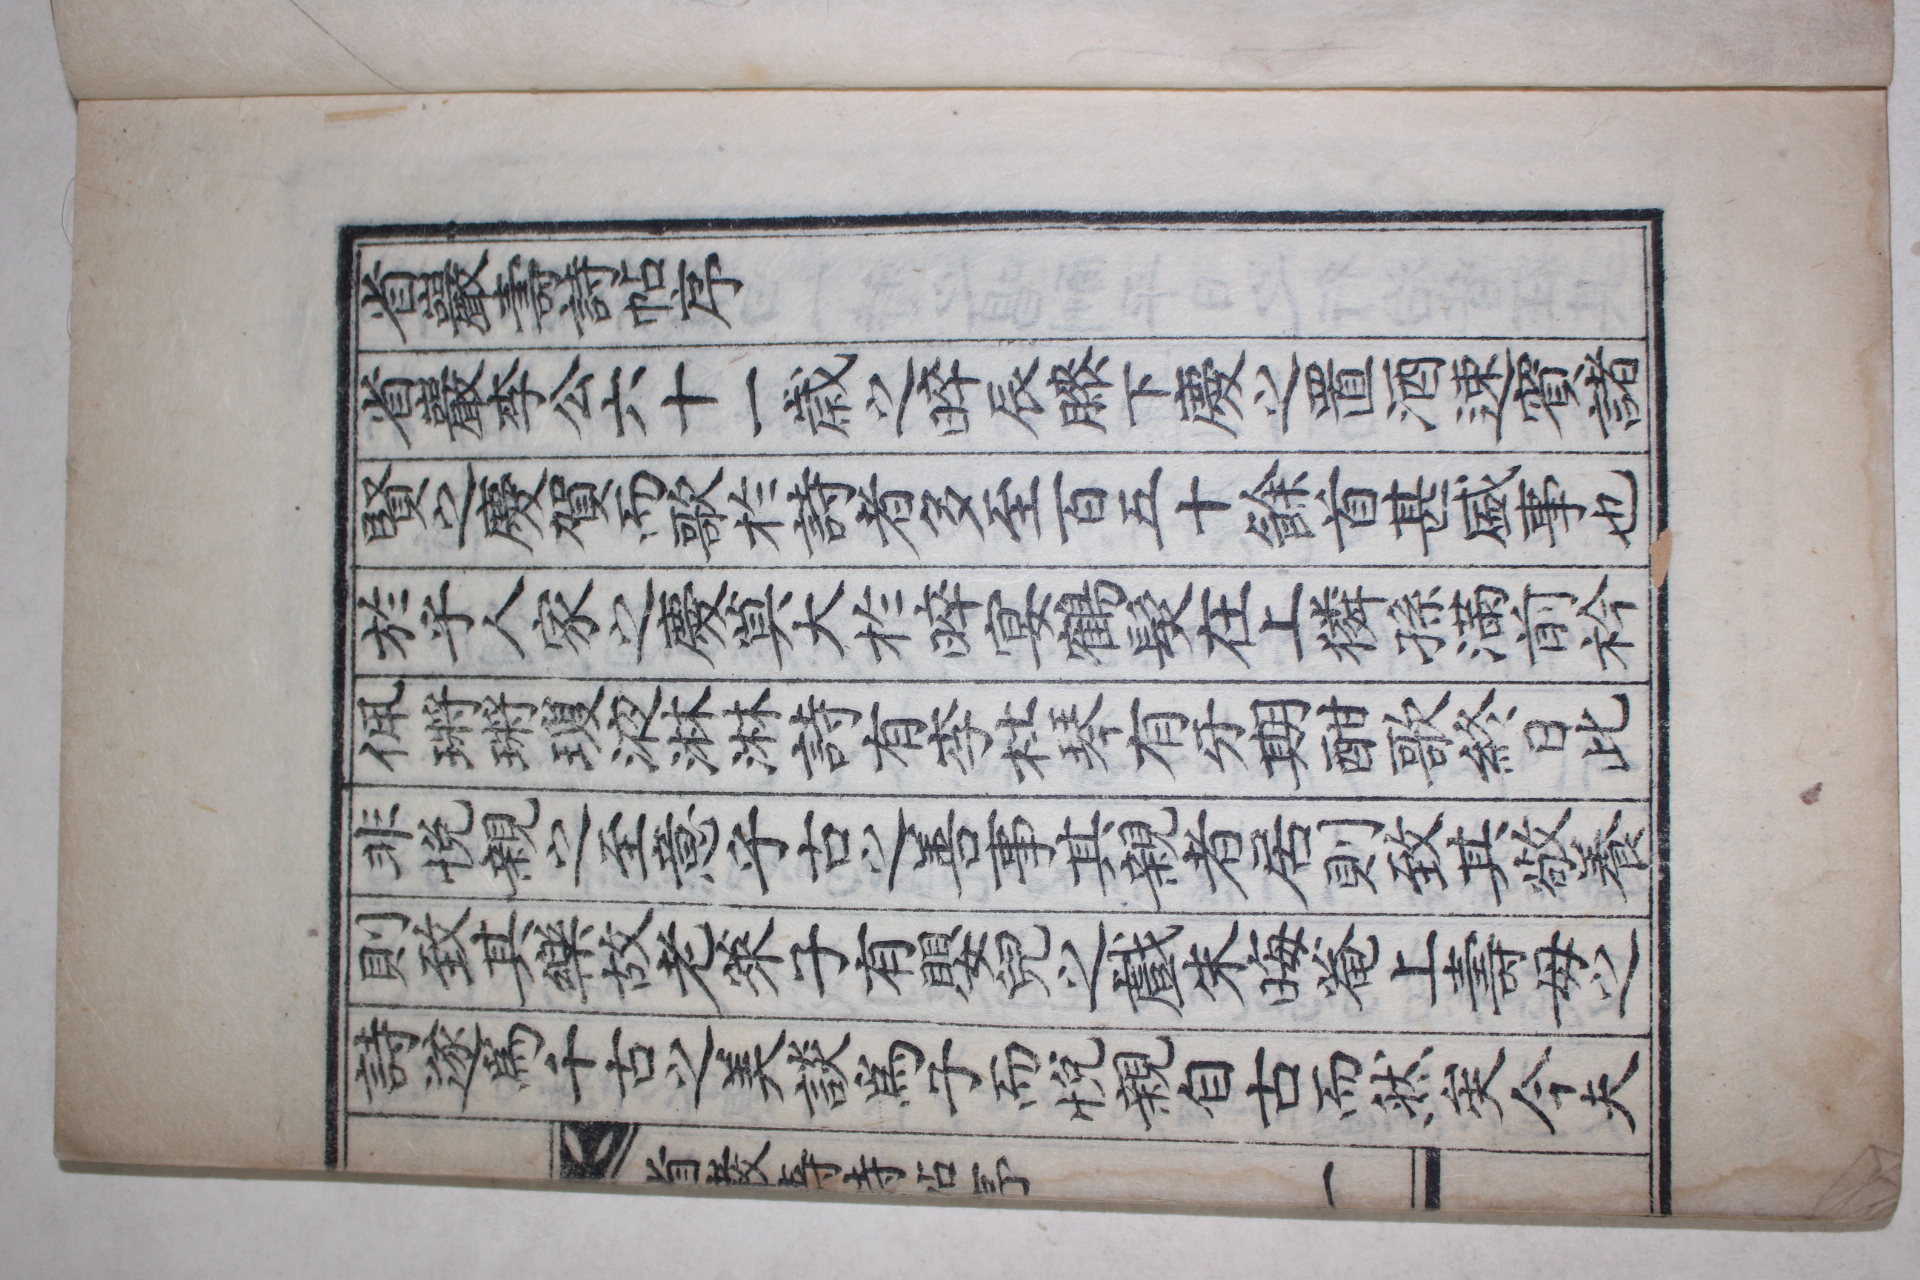 省巖壽詩帖序
省巖李公六十一歲之晬辰膝下慶之置酒速賓諸
賢之慶賀而歌於詩者多至百五十餘首甚盛事也
於乎人家之慶莫大於晬宴鶴髮在上獜孫滿前衿
佩瑲瑲瓊液淋淋詩有李杜琴有牙期酣歌終日此
非悅親之至意乎古之善事其親者居則致其敬養
則致其樂故老萊子有嬰兒之戲朱晦菴上壽母之
詩遂爲千古之美談爲子而悅親自古而然矣今夫
省巖壽詩帖序 一